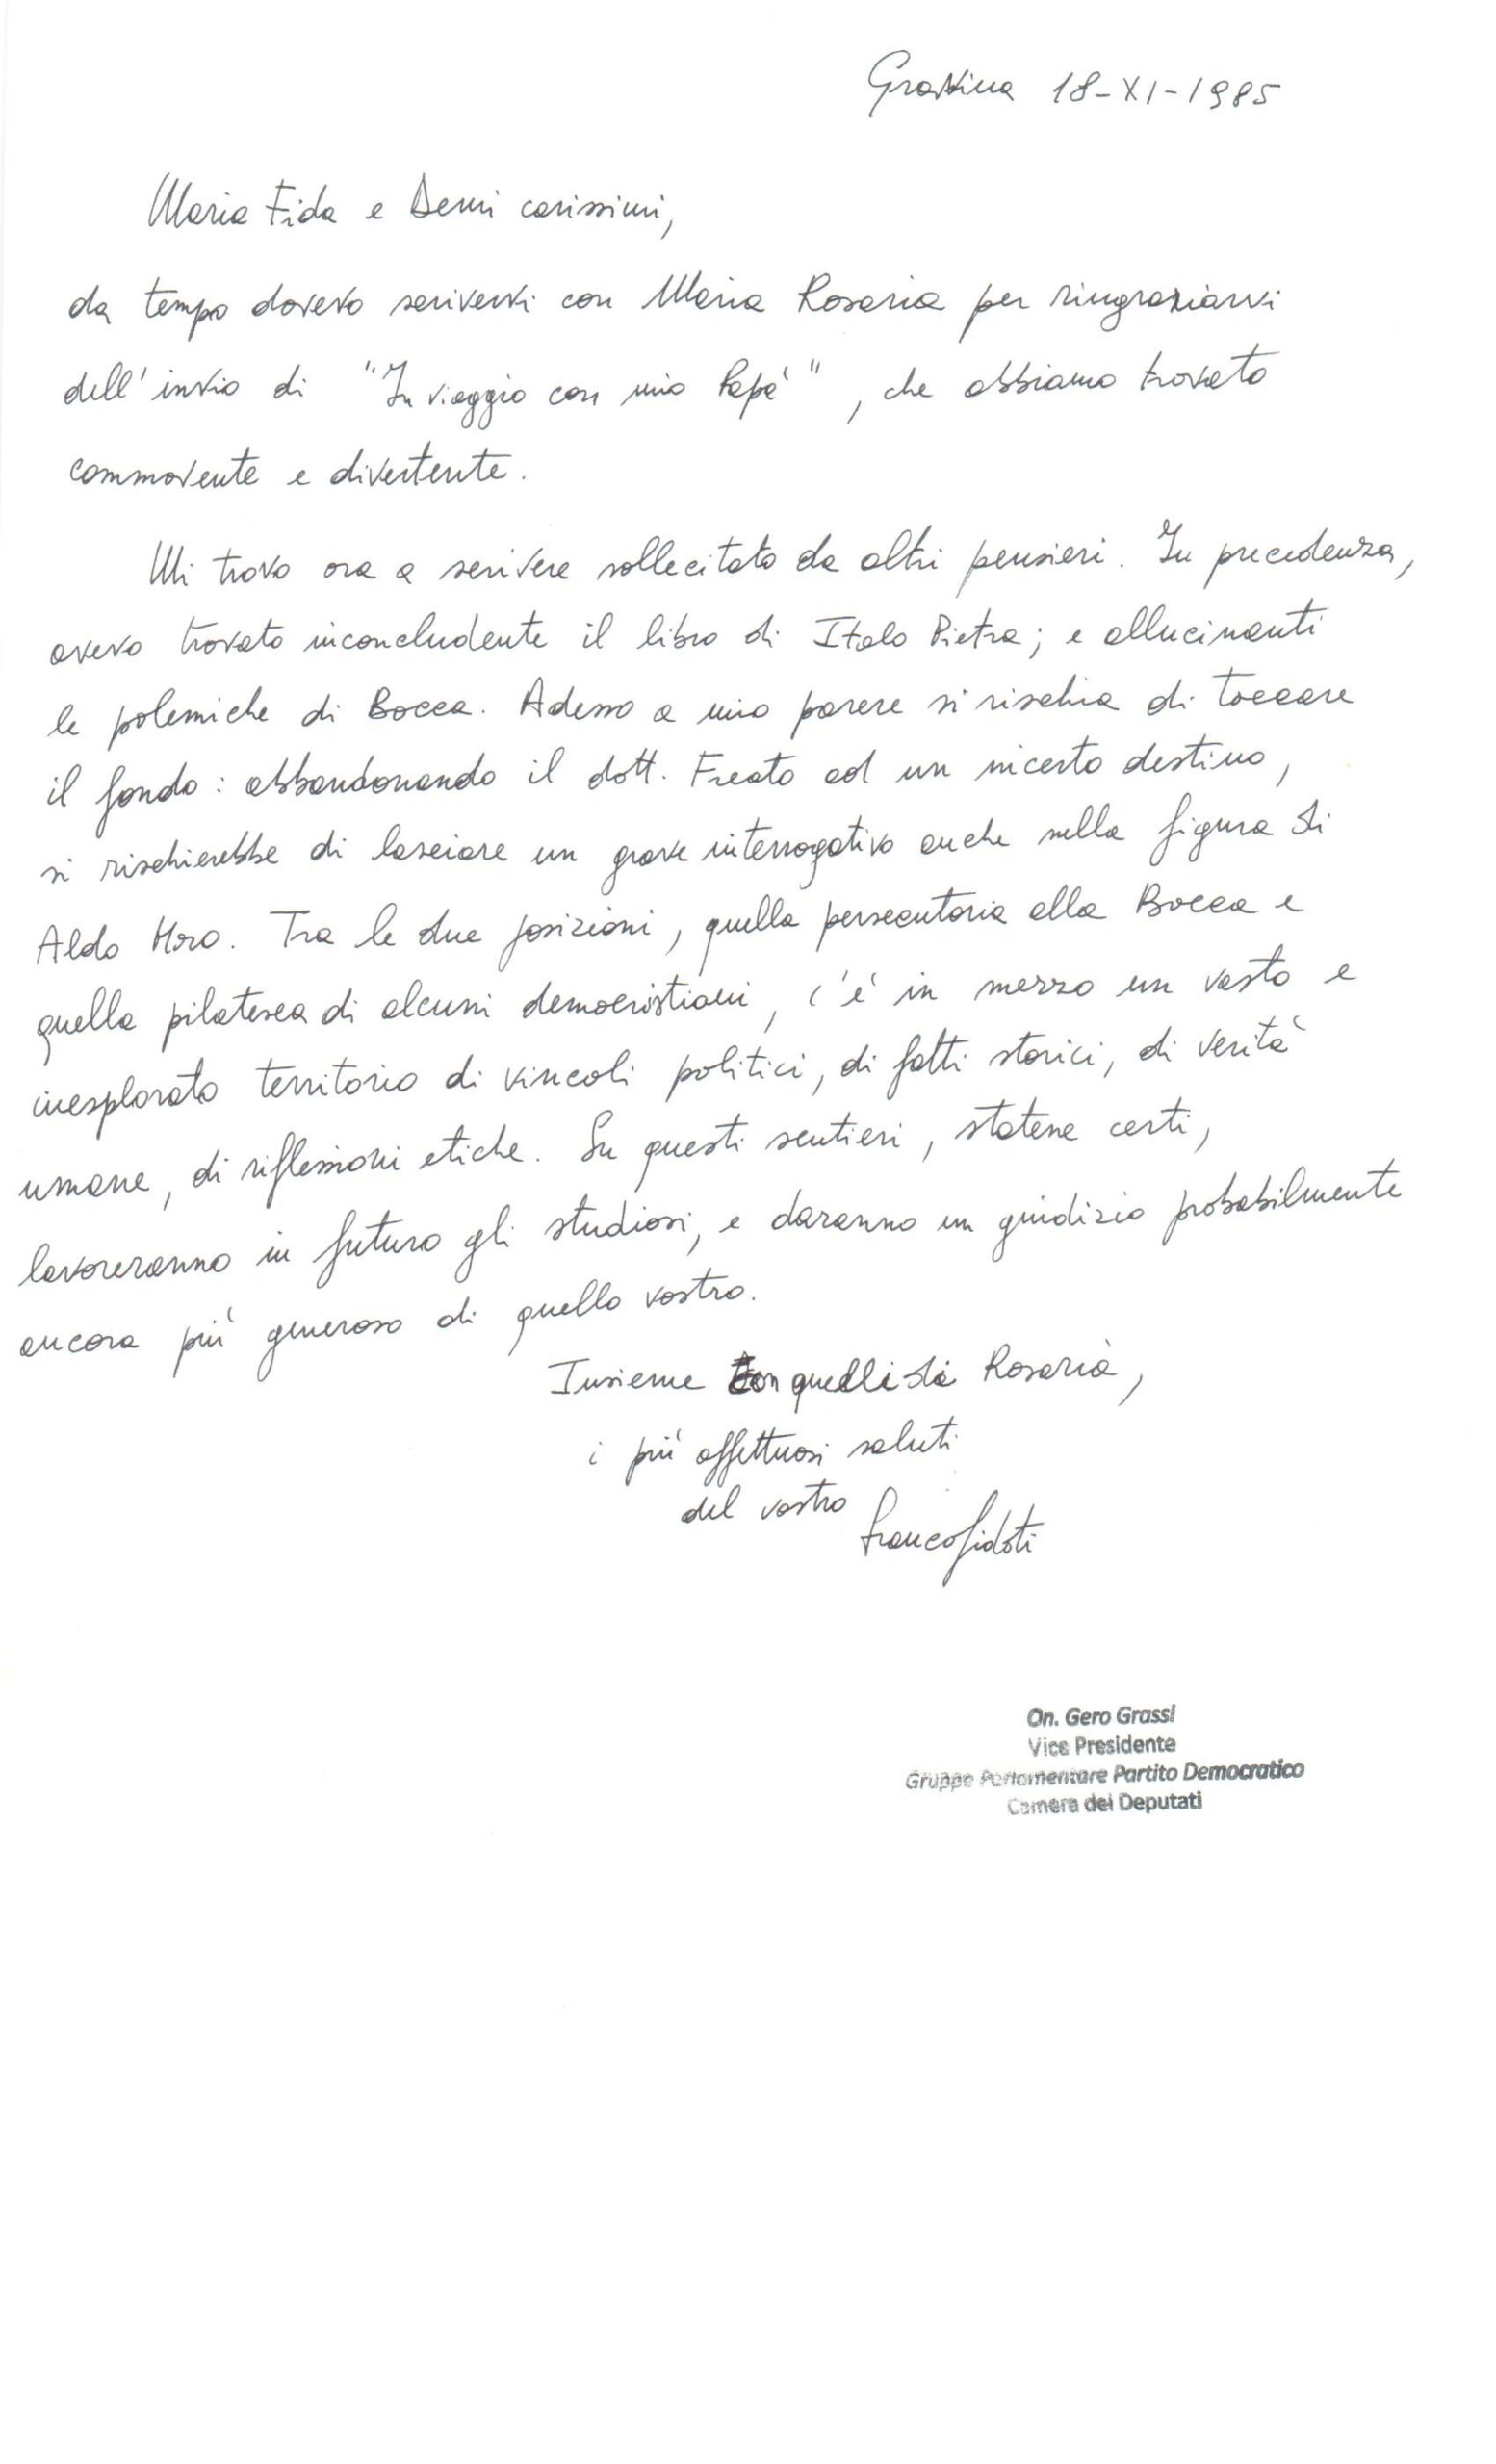 Grassina 18-XI-1985
Maria Fida e Demi carissimi,
da tempo dovevo scrivervi con Maria Rosaria per ringraziarvi
dell'invio di "In viaggio con mio Papà", che abbiamo trovato
commovente e divertente.
Mi trovo ora a scrivere sollecitato da altri pensieri. In precedenza,
avevo trovato inconcludente il libro di Italo Pietra; e allucinanti
le polemiche di Bocca. Adesso a mio parere si rischia di toccare
il fondo: abbandonando il dott. Freato ad un incerto destino,
si rischierebbe di lasciare un grave interrogativo anche sulla figura di
Aldo Moro. Tra le due posizioni, quella persecutoria alla Bocca e
quella pilatesca di alcuni democristiani, c'è in mezzo un vasto e
inesplorato territorio di vincoli politici, di fatti storici, di verità
umane, di riflessioni etiche. Su questi sentieri, statene certi,
lavoreranno in futuro gli studiosi, e daranno un giudizio probabilmente
ancora più generoso di quello vostro.
Insieme con quelli di Rosaria,
i più affettuosi saluti
del vostro
Franco Fidoti
On. Gero Grassi
Vice Presidente
Gruppo Parlamentare Partito Democratico
Camera dei Deputati